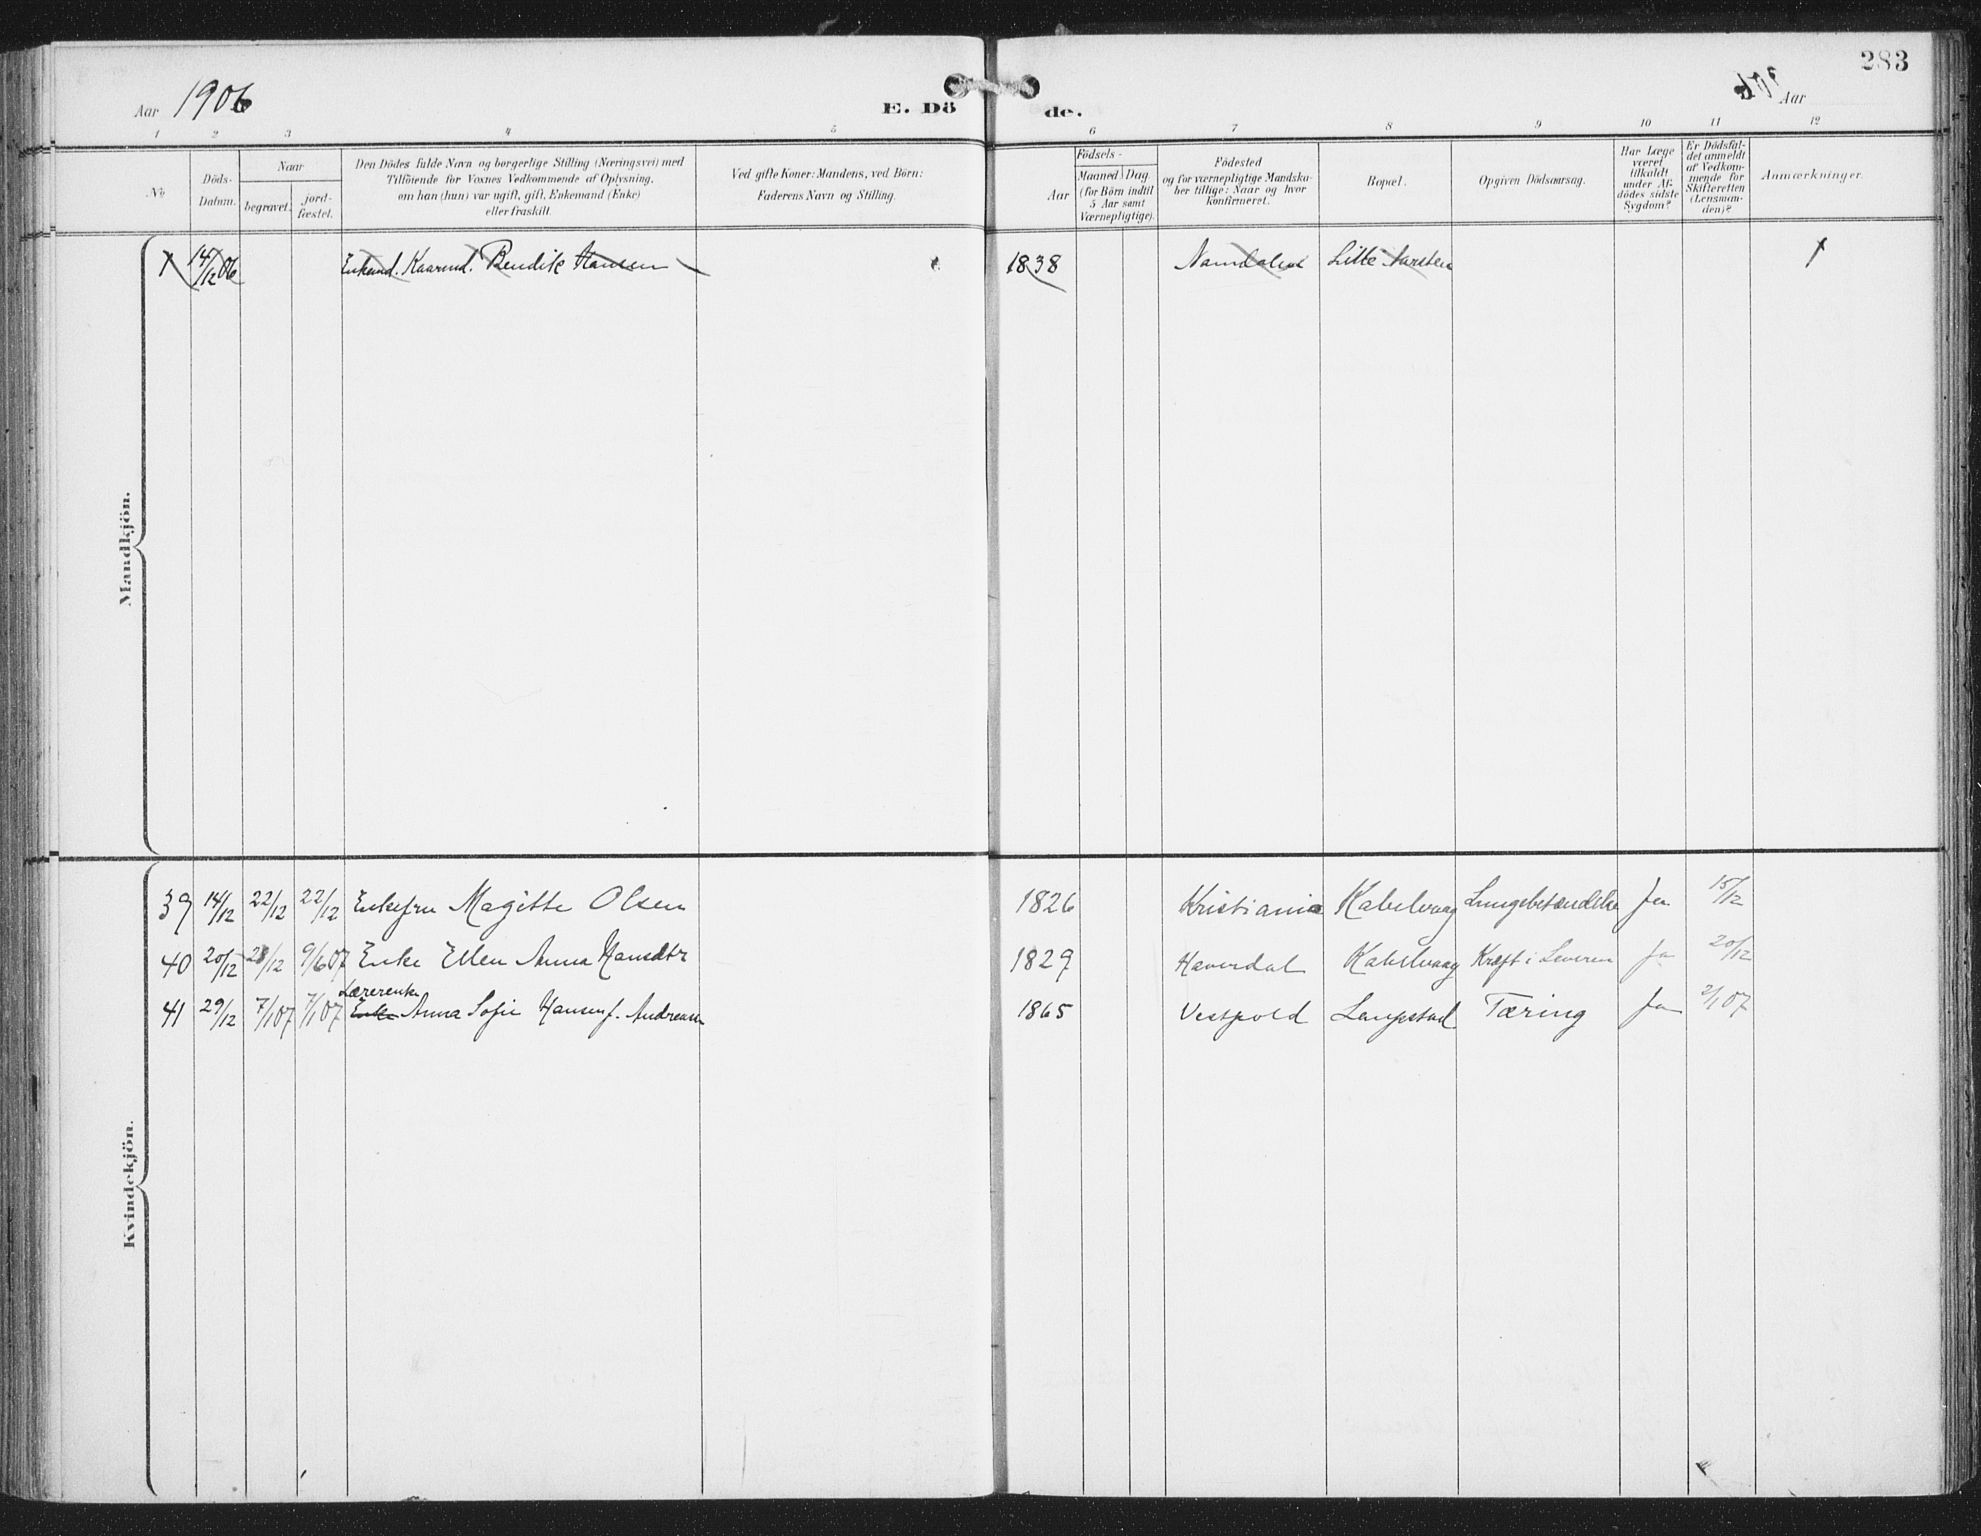 283
Aar 1906
E. Dö de.
Aar
1 2 3 4 5 6 7 8 9 10 11 12
No
Döds-
Datum.
Naar
begravet.
jord-
fæstet.
Den Dödes fulde Navn og borgerlige Stilling (Næringsvei) med
Tilföiende for Voxnes Vedkommende af Oplysning,
om han (hun) var ugift, gift, Enkemand (Enke)
eller fraskilt.
Ved gifte Koner: Mandens, ved Börn:
Faderens Navn og Stilling.
Födsels-
Aar
Maaned Dag
(for Börn indtil
5 Aar samt
Værnepligtige).
Födested
og for værnepligtige Mandska-
ber tillige: Naar og hvor
konfirmeret.
Bopæl.
Opgiven Dödsaarsag.
Har Læge
været
tilkaldt
under Af-
dödes sidste
Sygdom?
Er Dödsfal-
det anmeldt
af Vedkom-
mende for
Skifteretten
(Lensman-
den)?
Anmærkninger.
Mandkjön.
1 14/12 06 Enkemd. Kaarmd. Bendik Hansen 1838 Namdalen Lille
Kvindekjön.
39 14/12 22/12 22/12 Enkefru Magitte Olsen 1826 Kristiania Kabelvaag Lungebetændelse ja 15/12
40 20/12 28/12 9/6 07 Enke Ellen Anna Hansdtr 1829 Haverdal Kabelvaag Kræft i Leveren ja 20/12
Lærerenke
41 29/12 7/1 07 7/1 07 Enke Anna Sofie Hansen f. Andreasen 1865 Vestpold Laupstad Tæring ja 2/1 07